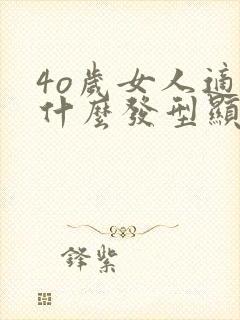 4o歲女人適
什麼發型顯
鋒紫